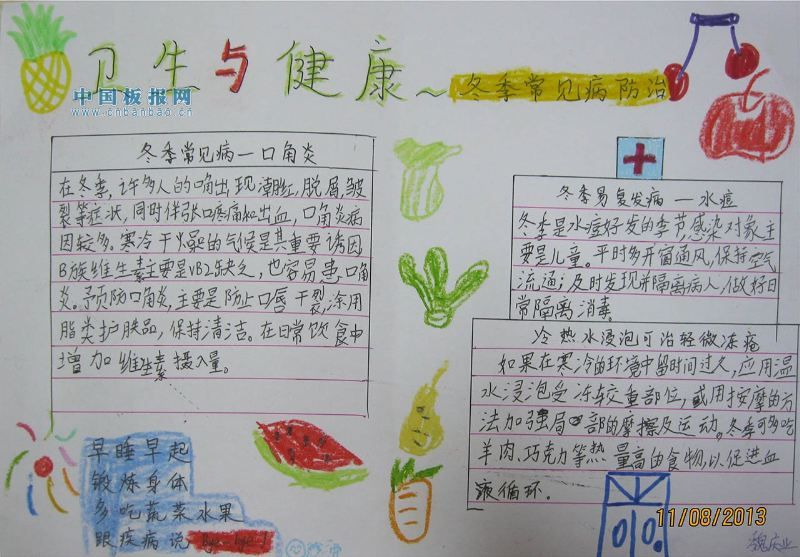 卫生与健康~冬季常见病防治
中国板报网
www.cnbanbao.cn
冬季常见病一口角炎
在冬季,许多人的口角出现潮红,脱屑皱
裂等症状,同时伴张口疼痛和出血,口角炎病
因较多。寒冷干燥的气候是其重要诱因
B族维生素主要是VB2缺乏,也容易患口角
炎。予预防口角炎,主要是防止口唇干裂,涂用
脂类护肤品,保持清洁。在日常饮食中
增加维生素摄入量。
冬季易复发病一水痘
冬季是水痘好发的季节感染对象主
要是儿童。平时多开窗通风,保持空气
流通;及时发现并隔离病人,做好日
常隔离消毒
冷热水浸泡可治轻微冻疮
如果在寒冷的环境中留时间过久,应用温
水浸泡受冻较重部位,或用按摩的方
法加强局部的摩擦及运动。冬季可多吃
羊肉、巧克力等热量高的食物,以促进血
液循环。
早睡早起
锻炼身体
多吃蔬菜水果
跟疾病说Bye-bye!
11/08/2013